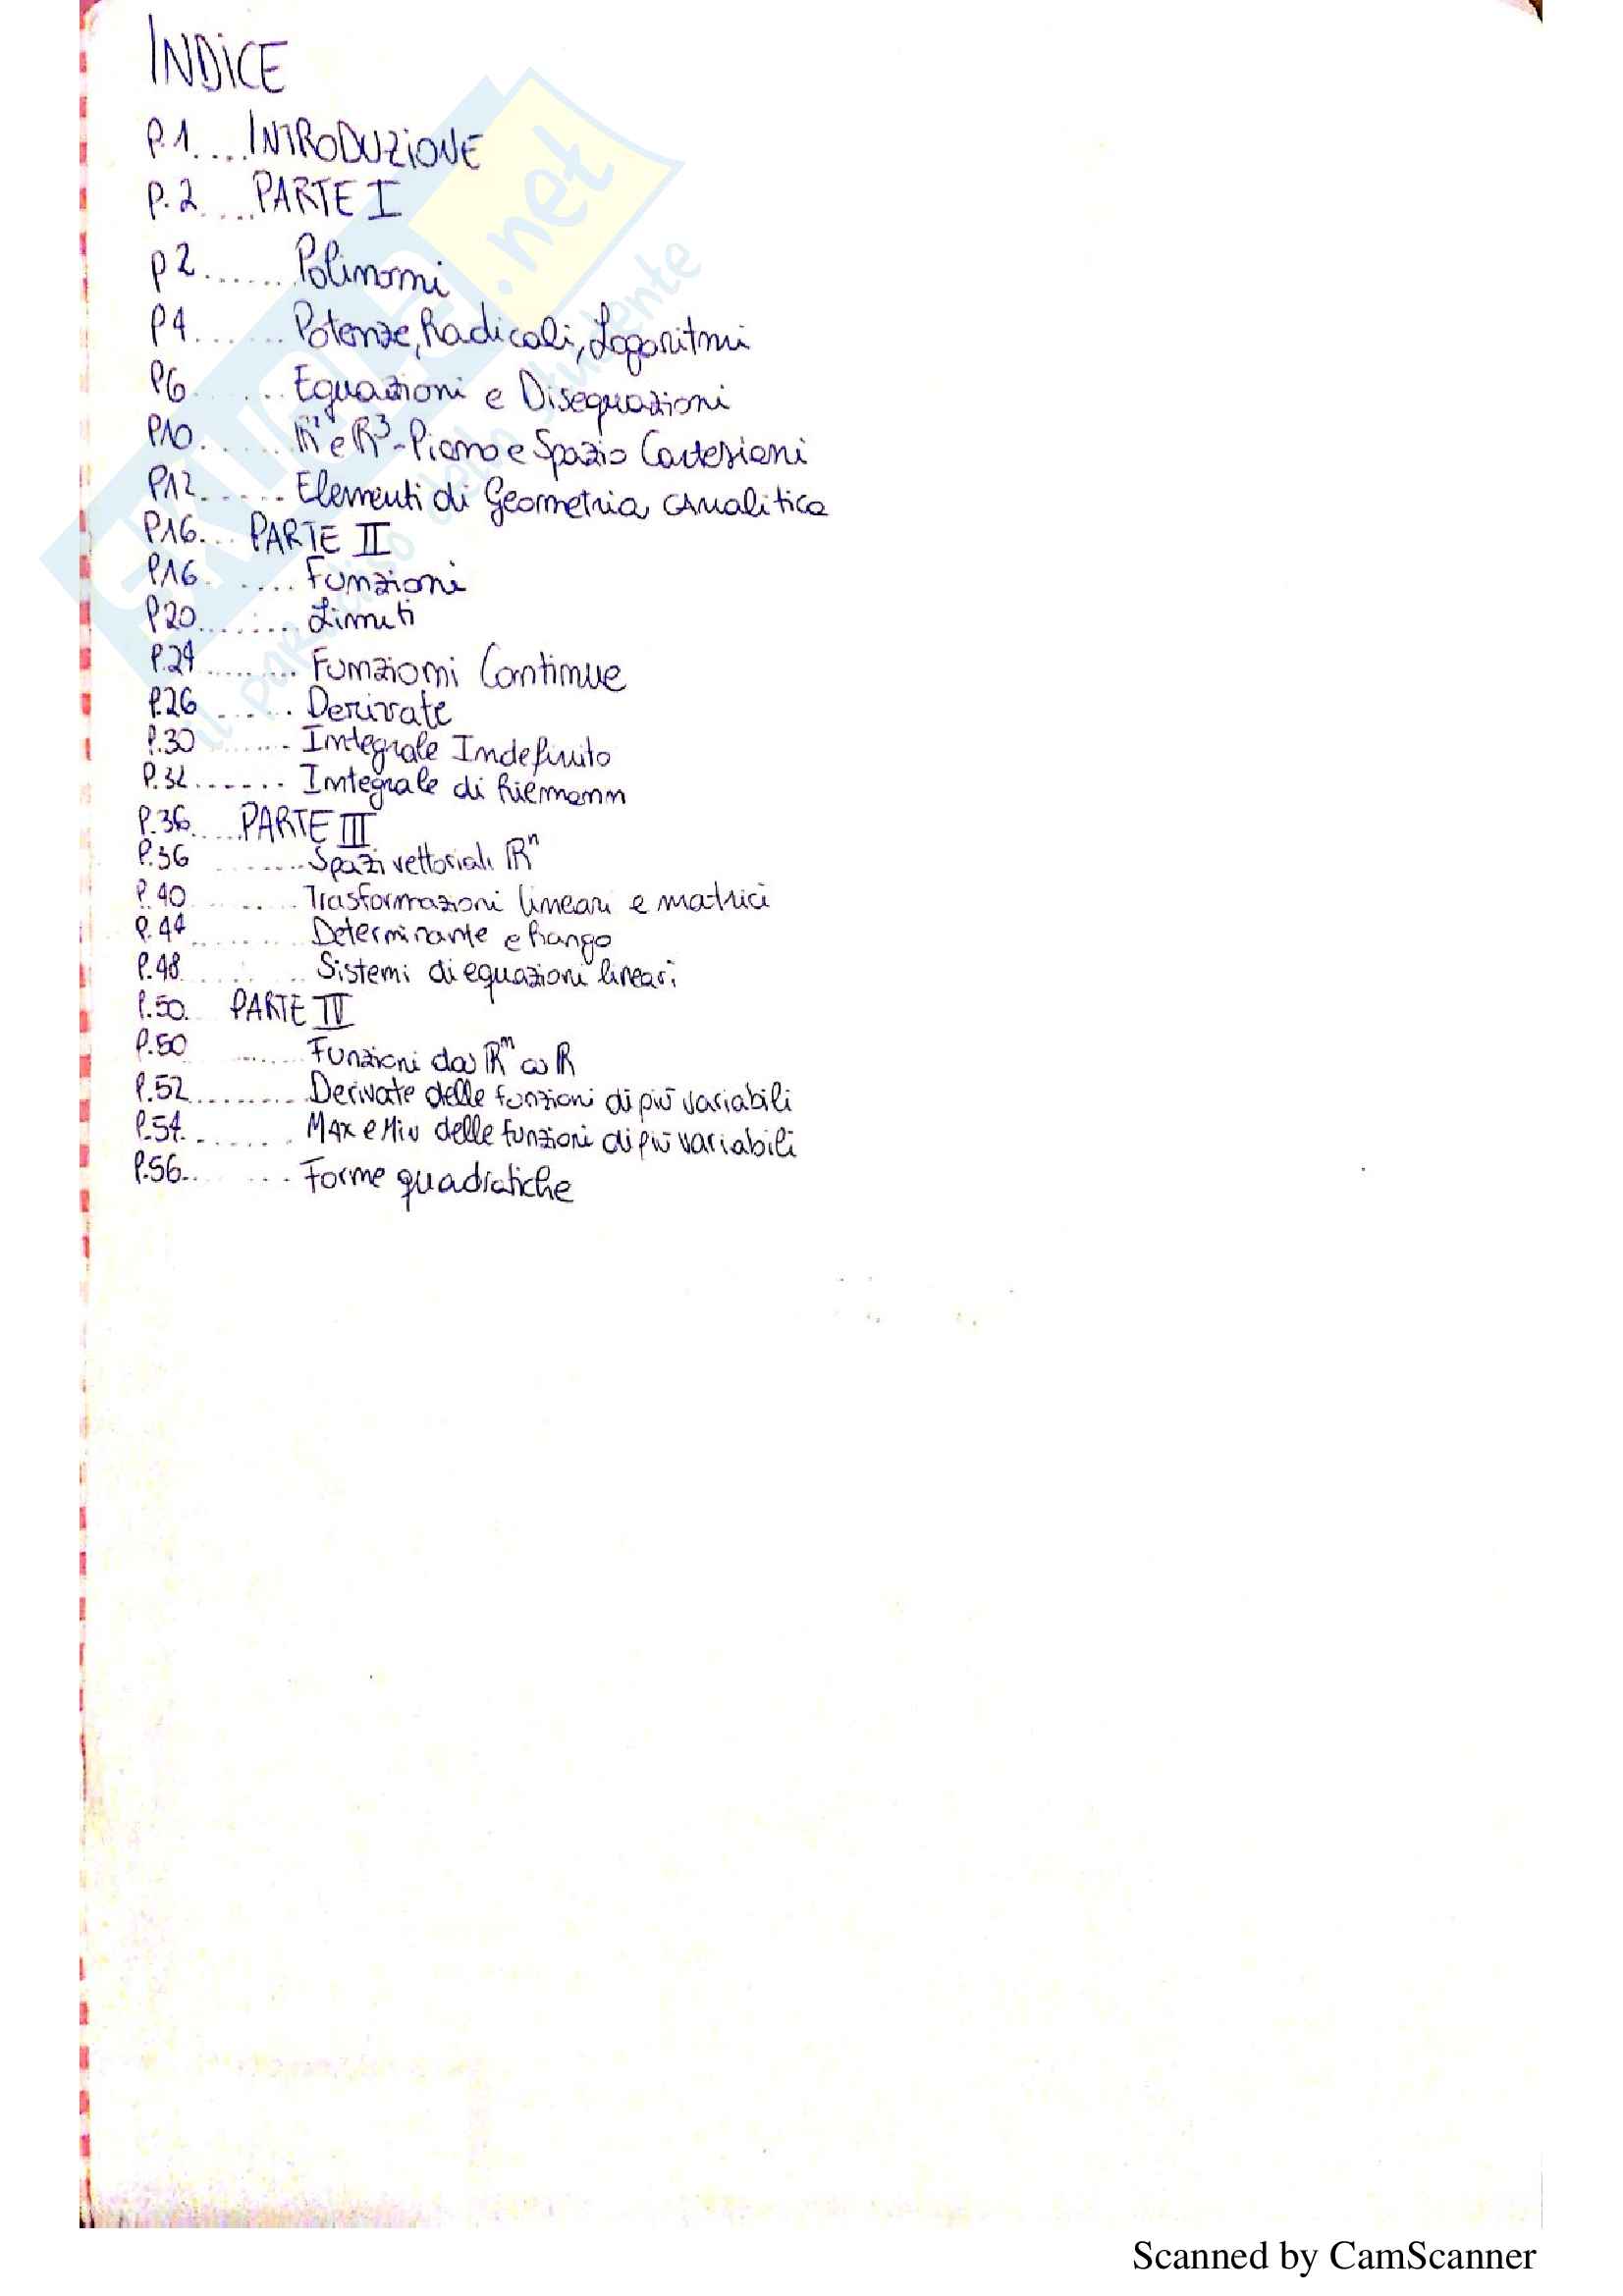 INDICE
P.1....INTRODUZIONE
P.2....PARTE I
P2.......Polinomi
P4.......Potenze, Radicali, Logaritmi
P6.......Equazioni e Disequazioni
P10.......e R³-Piano e Spazio Cartesiani
P12......Elementi di Geometria Analitica
P16...PARTE II
P16.......Funzioni
P20........Limiti
P.24.........Funzioni Continue
P.26......Derivate
P.30.......Integrale Indefinito
P.32.......Integrale di Riemann
P.36.....PARTE III
P.36.......Spazi vettoriali Rⁿ
P.40......Trasformazioni lineari e matrici
P.44........Determinante e Rango
P.48......Sistemi di equazioni lineari
P.50. PARTE IV
P.50.......Funzioni da Rⁿ a R
P.52..........Derivate delle funzioni di più variabili
P.54........Max e Min delle funzioni di più variabili
P.56.......Forme quadratiche
SKUOLA.net
il paradiso dello studente
Scanned by CamScanner